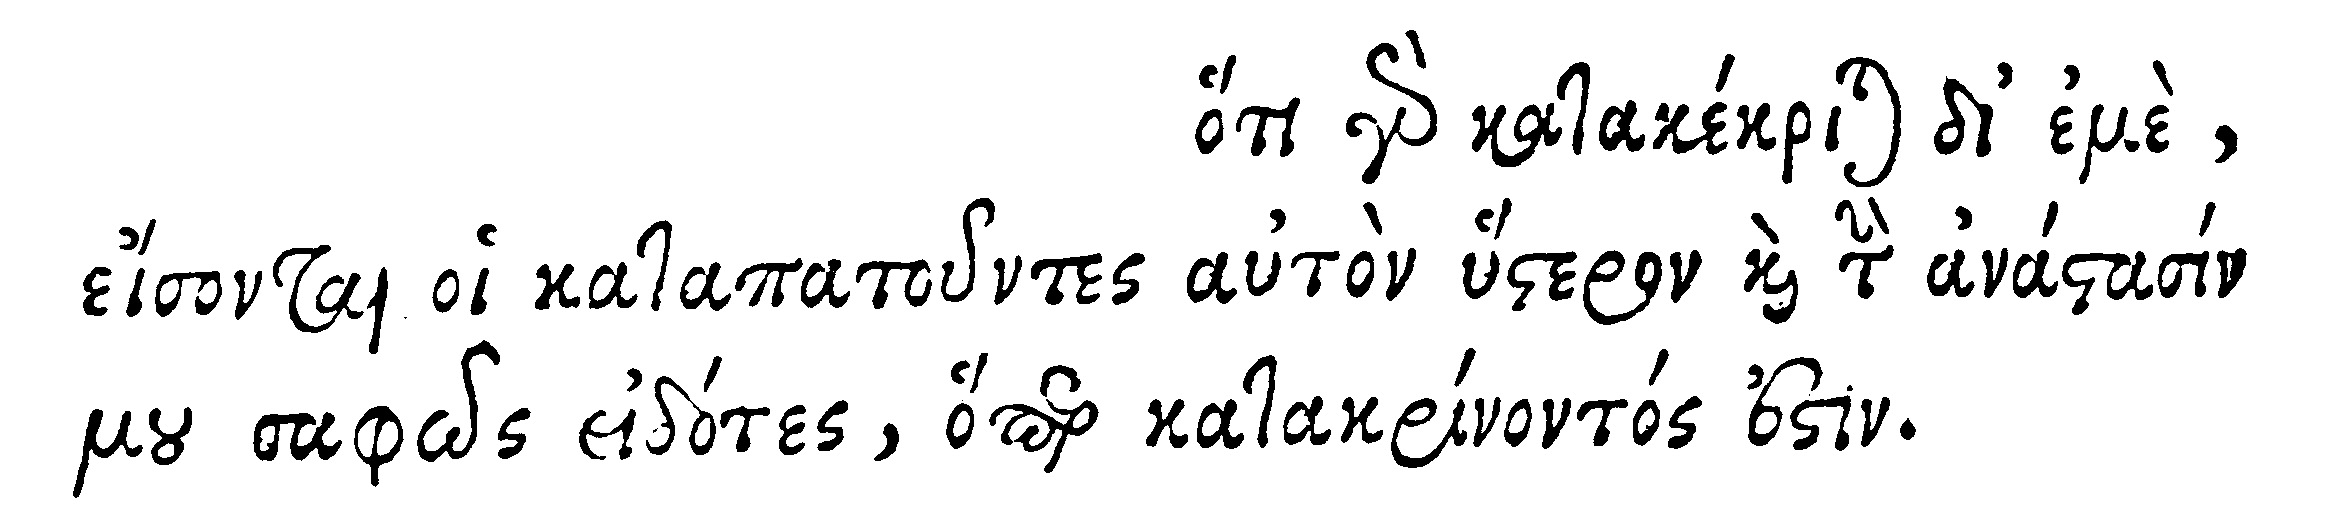 ὅτι γὰρ κατακέκριται δι᾽ ἐμὲ,
εἴσονται οἱ καταπατοῦντες αὐτὸν ὕστερον καὶ τὴν ἀνάστασίν
μου σαφῶς εἰδότες, ὅπερ κατακρίνοντός ἐστιν.